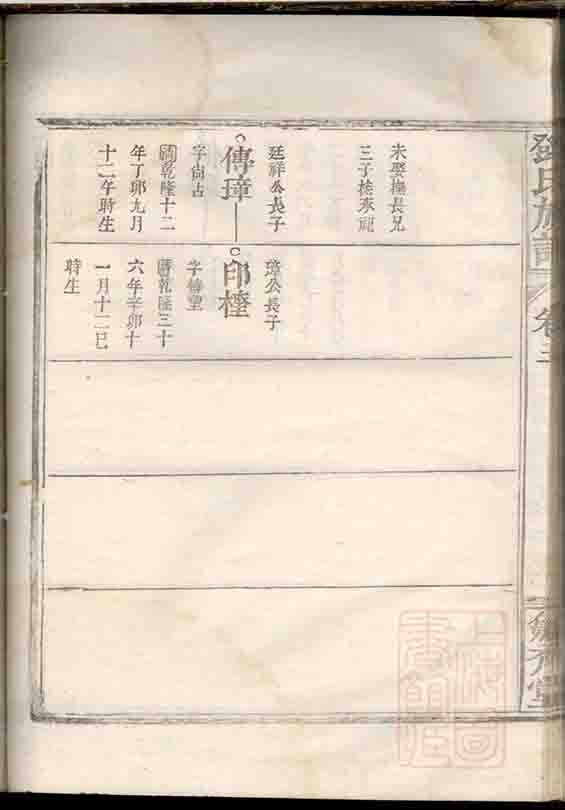 鄧氏族譜
卷三
未娶撫長兄
三子桂承祀
廷祥公長子
傳璋
字尙占
清乾隆十二
年丁卯九月
十二午時生
璋公長子
印桂
字
清乾隆三十
六年辛卯十
一月十二巳
時生
上海圖
書館藏